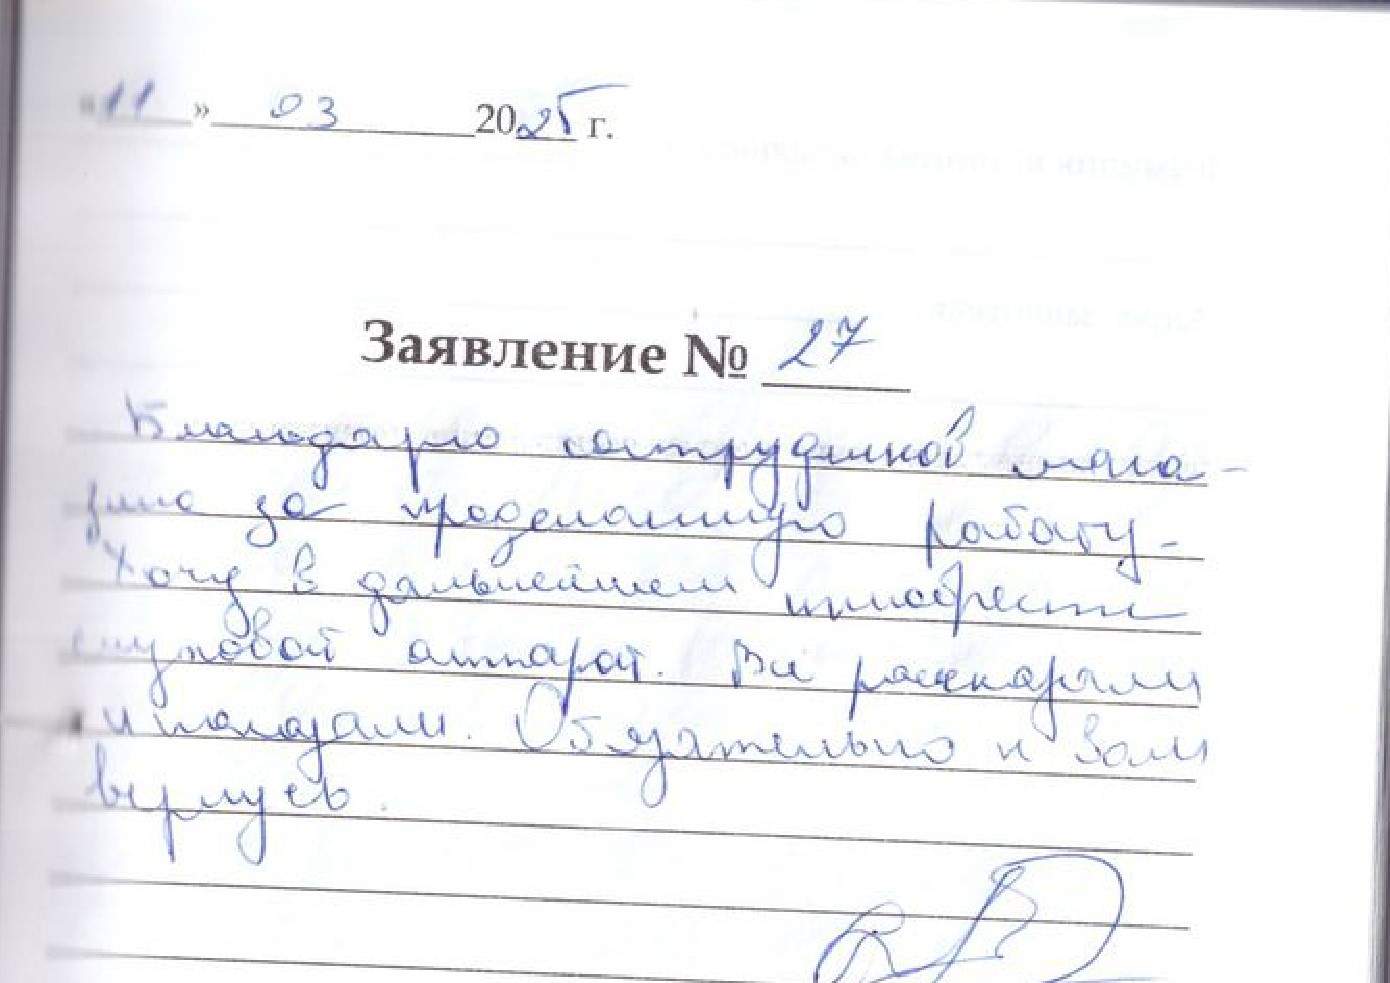 «11» 03 2025 г.
Заявление № 27
Благодарю сотрудников мага-
зина за проделанную работу.
Хочу в дальнейшем приобрести
слуховой аппарат. Всё рассказали
и показали. Обязательно к Вам
вернусь.